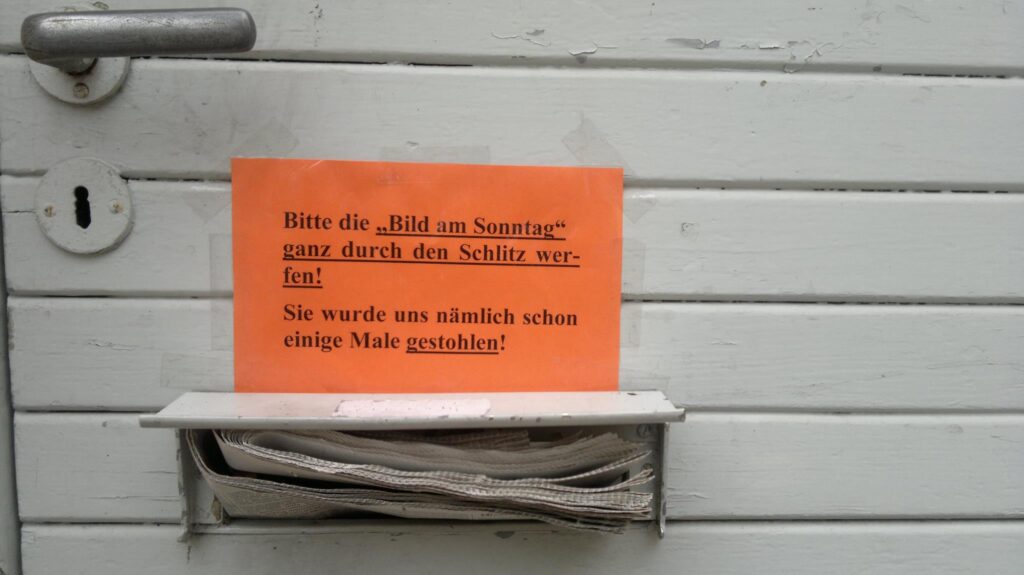 Bitte die „Bild am Sonntag“
ganz durch den Schlitz wer-
fen!
Sie wurde uns nämlich schon
einige Male gestohlen!